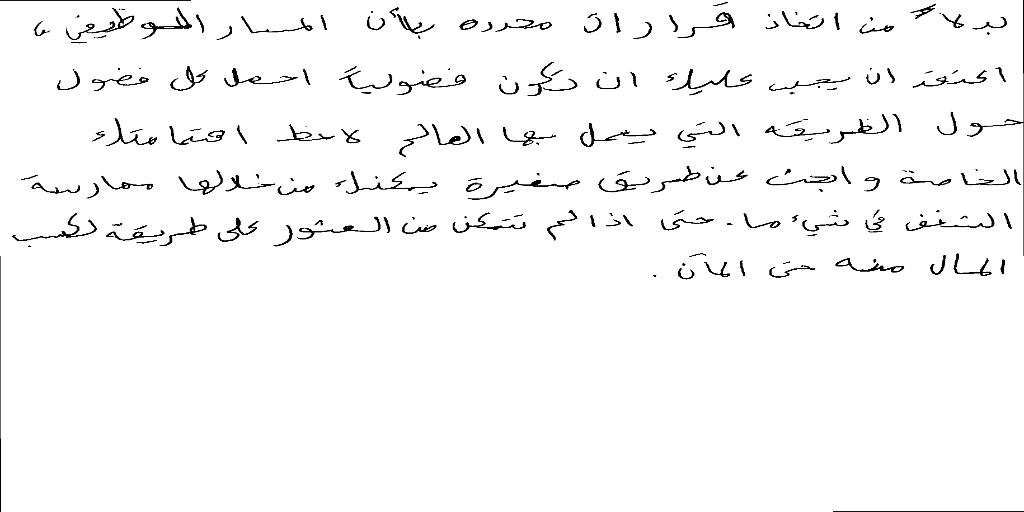 بدلاً من اتخاذ قرارات محدده بشأن المسار الوظيفي ،
اعتقد ان يجب عليك ان تكون فضولياً احصل على فضول
حول الطريقه التي يعمل بها العالم لاحظ اهتماماتك
الخاصة وابحث عن طريق صغيرة يمكنك من خلالها ممارسة
الشغف في شيء ما . حتى اذا لم تتمكن من العثور على طريقة لكسب
المال منه حتى الآن .